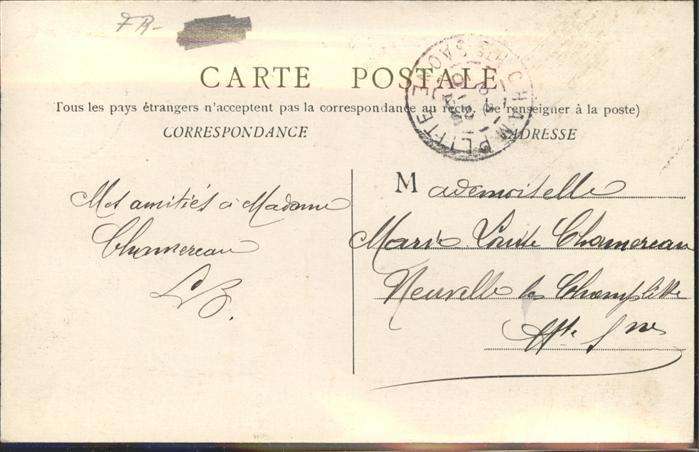 FR-
CARTE POSTALE
Tous les pays étrangers n'acceptent pas la correspondance au recto (Se renseigner à la poste)
CORRESPONDANCE
ADRESSE
CHAMPLITTE
Mes amitiés à Madame
Chamereau
LB.
Mademoiselle
Marie Louise Chamereau
Neuvelle les Champlitte
Hte Sne